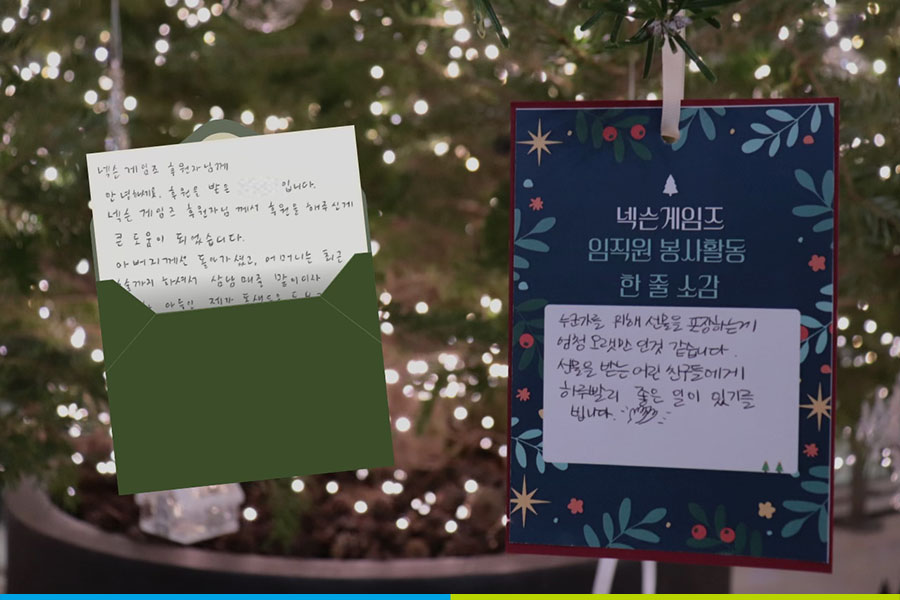 넥슨 게임즈 후원자님께
안녕하세요. 후원을 받은 입니다.
넥슨 게임즈 후원자님 께서 후원을 해주신게
큰 도움이 되었습니다.
아버지께선 돌아가셨고, 어머니는 최근
하셔서 삼남매중 맏이다
넥슨게임즈
임직원 봉사활동
한 줄 소감
누군가를 위해 선물을 포장하는게
엄청 오랫만 인것 같습니다.
선물을 받는 어린 친구들에게
하루빨리 좋은 일이 있기를
빕니다.